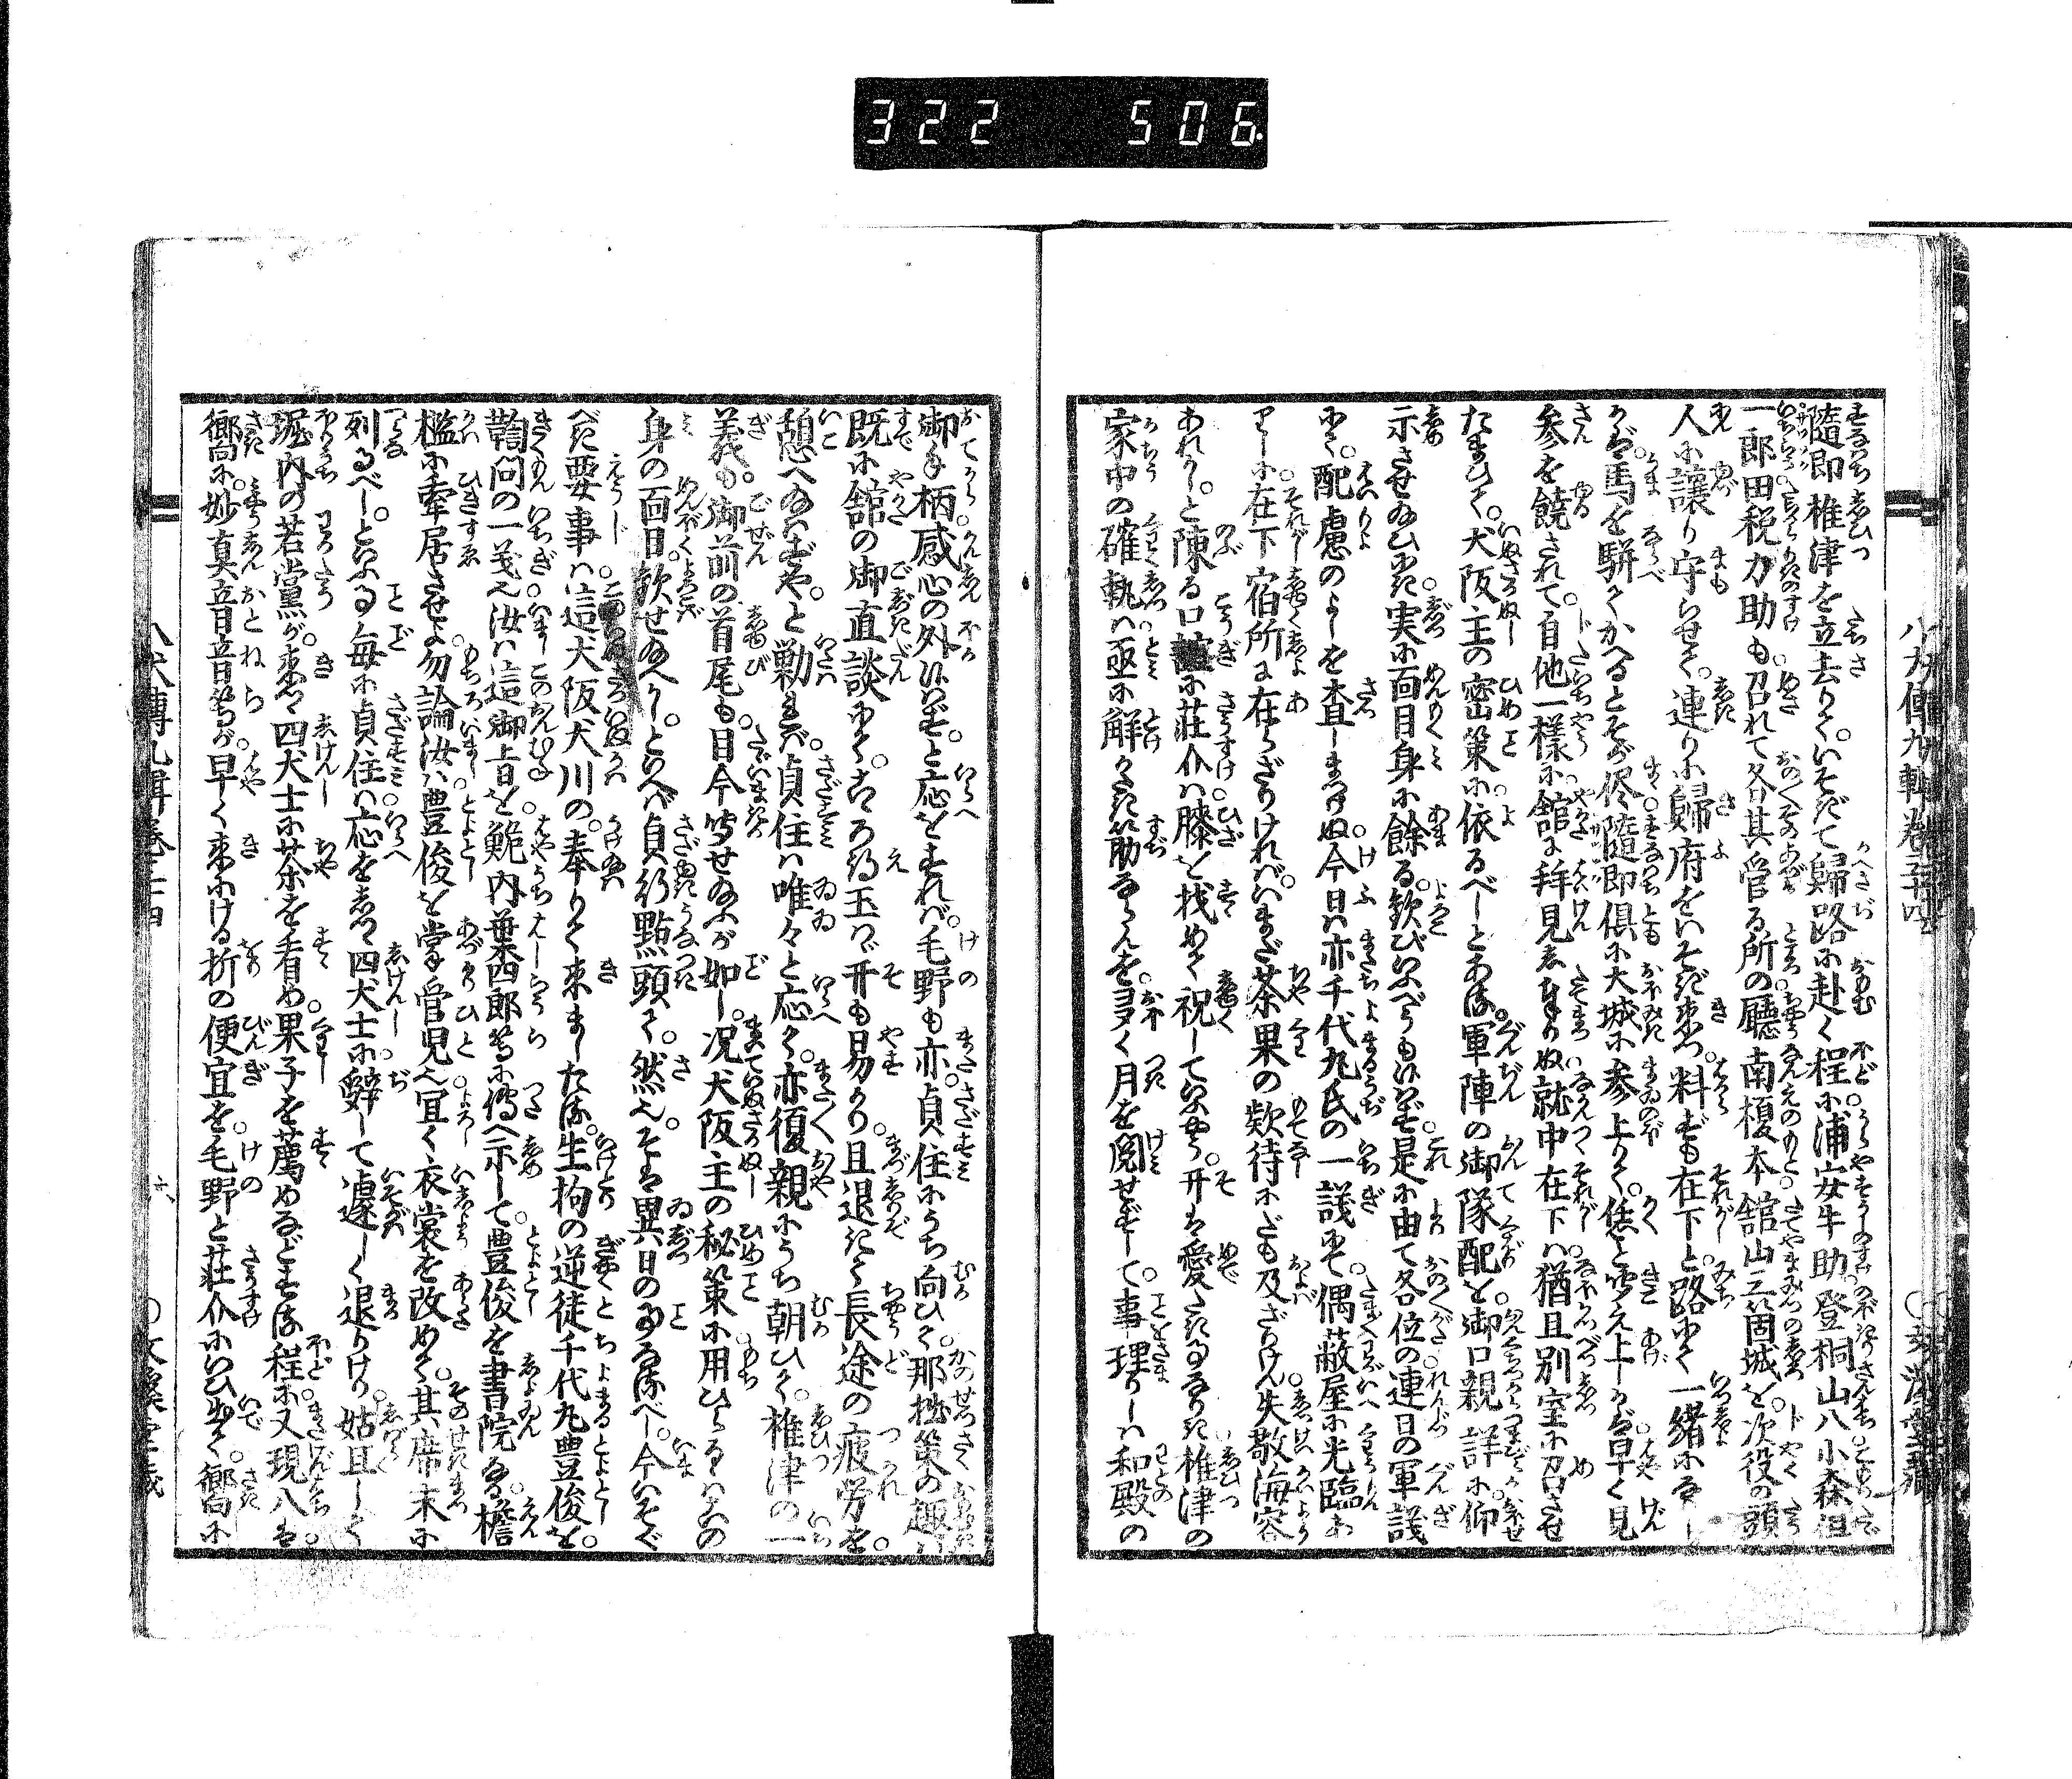 322 506
八犬傳九輯卷三十四
隨即椎津を立去りて。いそぎて歸路に赴く程に浦安牛助。登桐山八小森但
一郎田税力助も。召れて各其管る所の。廳南榎本館山三箇城を。次役の頭
人に讓り守らせて。連りに歸府をいそぎ來つ。料ずも在下と。路にて一緒に
馬を駢てかへるとそが侭隨即俱に大城に參上りて。恁と聞え上しかば早く見
參を饒されて。自他一樣に館に拜見しまつりぬ就中在下は猶且別室に召させ
たまひて。犬阪主の密策に依るべしとある。軍陣の御隊配を。御口親詳に仰
示させ給ひにき。実に面目身に餘る。歓びいふべうもはべらず是に由て各位の連日の軍議
にて。配慮のよしを査しまつりぬ今日は亦千代丸氏の一議にて。偶蔽屋に光臨あ
りしに在下宿所に在らざりければ。いまだ茶果の欵待にだも及ざりけん失敬海容
あれかし。と陳る口誼に莊介は膝を找めて祝していふやう。开は愛たき事なりき椎津の
家中の確執は亟に觧かたき筋ならんを。多く月を閲せずして。事理りしは和殿の
御手柄。感心の外はべらず。と応をすれば。毛野も亦。貞住にうち向ひて。那拙策の趣は
既に舘の御直談にて。こころ得玉はゞ开も易かり。且退きて長途の疲労を。
憩へ給はずや。と勸れば。貞住は唯々と応て。亦復親にうち朝ひて。椎津の一
義も。御前の首尾も。目今告せ給ふが如し。况犬阪主の秘策に用ひらるゝはこの
身の面目歓せ給へかし。といへば貞行點頭て。然也。そは異日の事なるべし。今いそぐ
べき要事は。這犬阪犬川の。奉りて來ましたる。生拘の逆徒千代丸豊俊を。
鞫問の一義也汝は這御上旨を。鮠内葉四郎等に傳へ示して。豊俊を書院なる。檐
檻に牽居させよ。勿論汝は豊俊を掌管児也宜く衣裳を改めて。其席末に
列るべし。といふ事毎に貞住は応をしつゝ四犬士に。辭して遽しく退りけり。姑且して
堀内の若黨が。來つゝ四犬士に茶を看め。果子を薦めなどする程に。又現八は
嚮に。妙真音音等が早く來にける折の便宜を。毛野と莊介にいひ出て。嚮に
八犬傳九輯卷三十四
六
○文溪堂藏